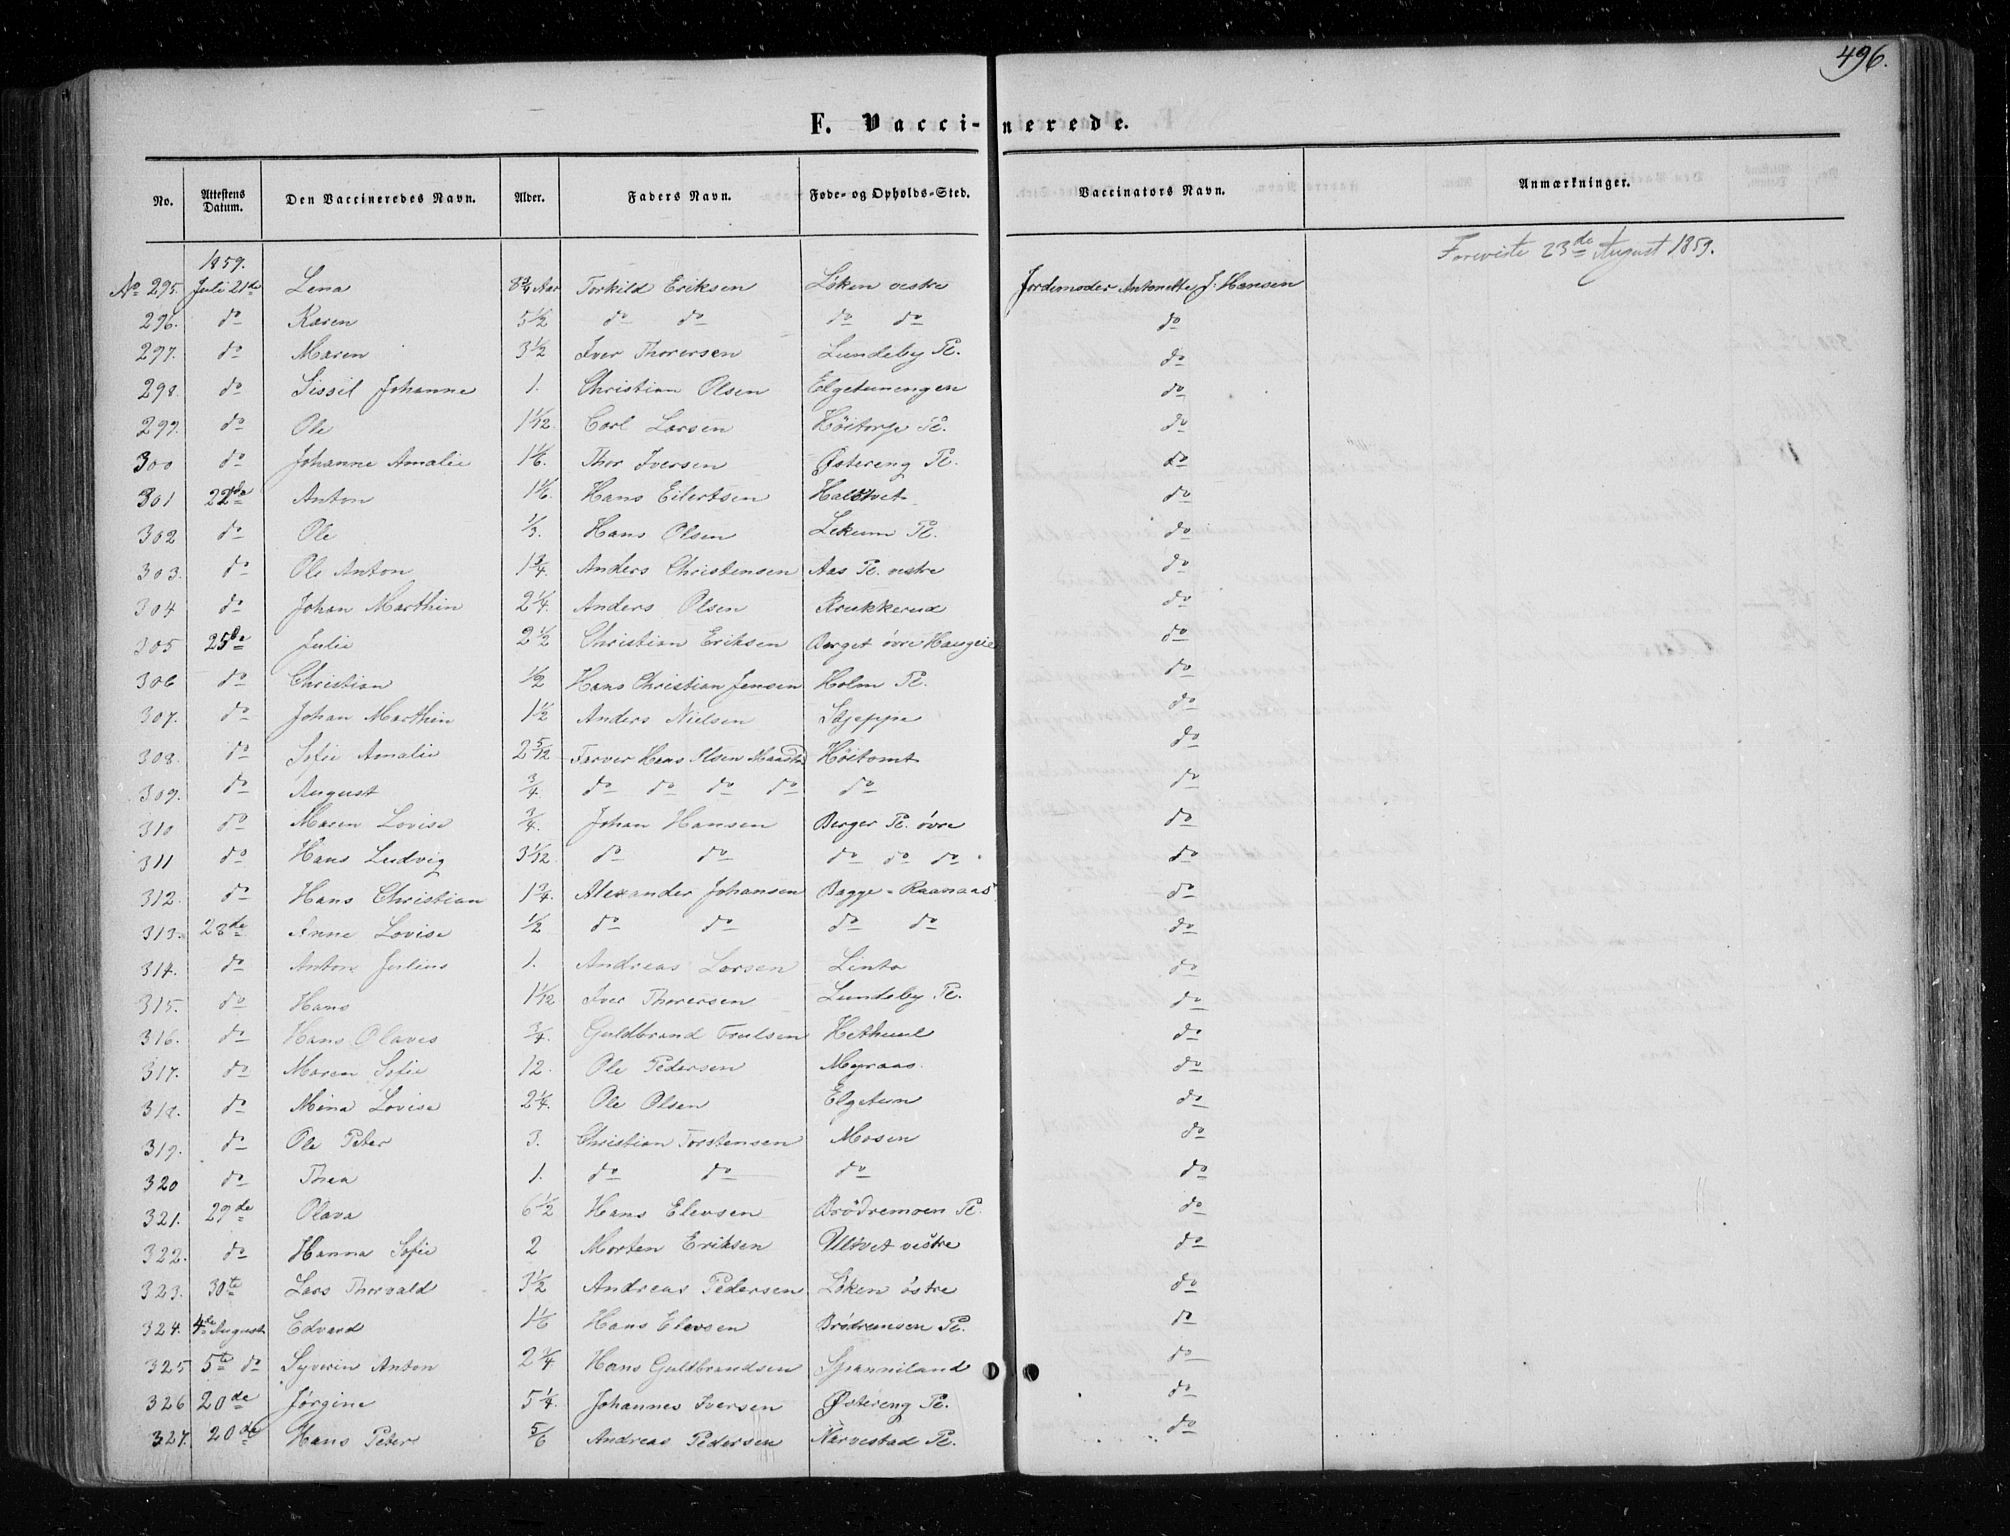 496.
F. Vaccinerede.
No. Attestens Datum. Den Vaccineredes Navn. Alder. Faders Navn. Føde- og Opholds-Sted. Vaccinators Navn. Anmærkninger.
1859. Foreviste 23de August 1859.
No 295. Juli 21de Lena 8 3/4 Aar Torkild Eriksen Løken vestre Jordemoder Antonette J. Hansen
296. do Karen 5 1/2 do do do do do
297. do Maren 3 1/2 Iver Thorersen Lundeby Pl. do
298. do Sissil Johanne 1. Christian Olsen Elgetunengen do
299. do Ole 1 1/12. Carl Larsen Høitorp Pl. do
300 do Johanne Amalie 1 1/6. Thor Iversen Østereng Pl. do
301 22de Anton 1 1/6. Hans Eilertsen do
302 do Ole 1/3. Hans Olsen Lekum Pl. do
303. do Ole Anton 1 3/4. Anders Christensen Aas Pl. vestre do
304 do Johan Marthin 2 1/4. Anders Olsen Krukkerud do
305 25de Julie 2 1/2 Christian Eriksen Berget øvre do
306 do Christian 1/2 Hans Christian Jensen Holm Pl. do
307. do Johan Marthin 1 1/2 Anders Nielsen Skjeppe do
308. do Sofie Amalie 2 5/12 Farver Hans Olsen Høitomt do
309. do August 3/4 do do do do do do
310 do Maren Lovise 3/4. Johan Hansen Berger Pl. øvre do
311 do Hans Ludvig 3 1/12. do do do do do do
312. do Hans Christian 1 3/4. Alexander Johansen Bagge-Raanaas do
313. 28de Anne Lovise 1/2 do do do do do
314. do Anton Julius 1. Andreas Larsen Linto do
315. do Hans 1 1/12 Iver Thorersen Lundeby Pl. do
316. do Hans Olaves 3/4. Guldbrand Trulsen do
317. do Maren Sofie 12. Ole Pedersen Myraas. do
318. do Mina Lovise 2 1/4. Ole Olsen Elgetun do
319. do Ole Peter 3. Christian Torstensen Mosen do
320 do Thea 1. do do do do
321. 29de Olava 6 1/2 Hans Elevsen Brødremoen Pl. do
322. do Hanna Sofie 2 Morten Eriksen Ultvet vestre do
323. 30te Lars Thorvald 3 1/2 Andreas Pedersen Løken østre do
324. 4de August Edvard 1 1/6 Hans Elevsen Brødremoen Pl. do
325 5te do Syverin Anton 2 3/4 Hans Guldbrandsen Spanniland do
326 20de Jørgine 5 1/4. Johannes Iversen Østereng Pl. do
327. 20de Hans Peter 5/6 Andreas Pedersen Narvestad Pl. do